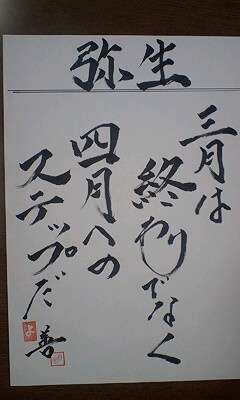 弥生
三月は
終わりでなく
四月への
ステップだ
善